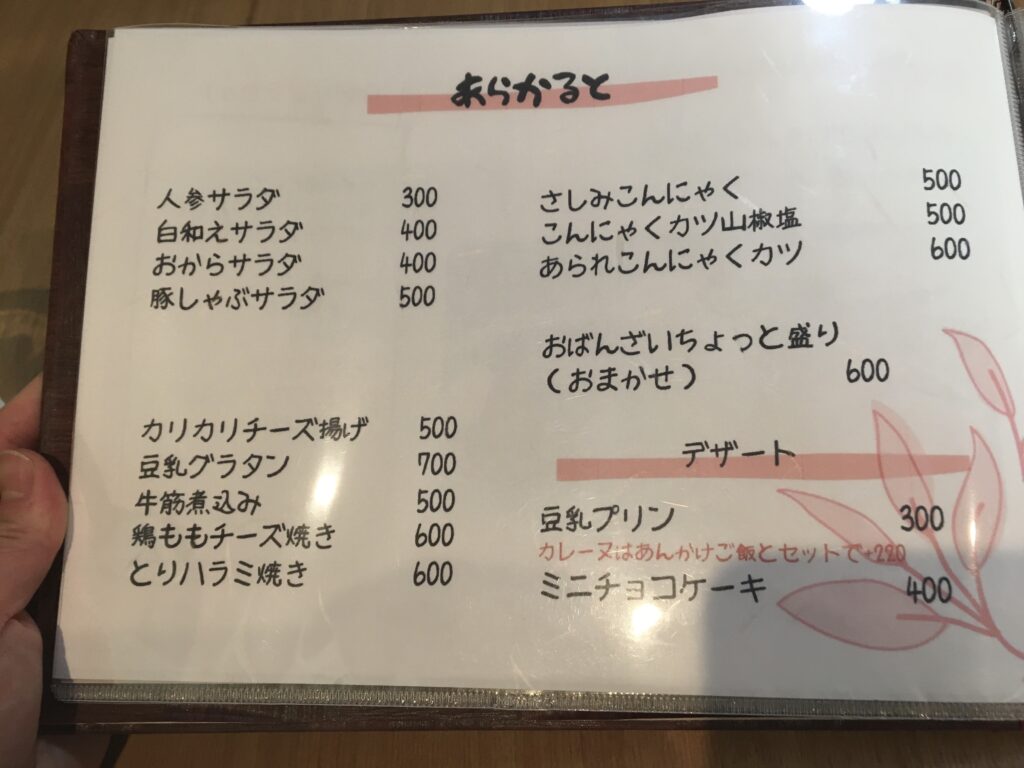 あらかると
人参サラダ 300
白和えサラダ 400
おからサラダ 400
豚しゃぶサラダ 500
カリカリチーズ揚げ 500
豆乳グラタン 700
牛筋煮込み 500
鶏ももチーズ焼き 600
とりハラミ焼き 600
さしみこんにゃく 500
こんにゃくカツ山椒塩 500
あられこんにゃくカツ 600
おばんざいちょっと盛り
(おまかせ) 600
デザート
豆乳プリン 300
カレーヌはあんかけご飯とセットで+220
ミニチョコケーキ 400